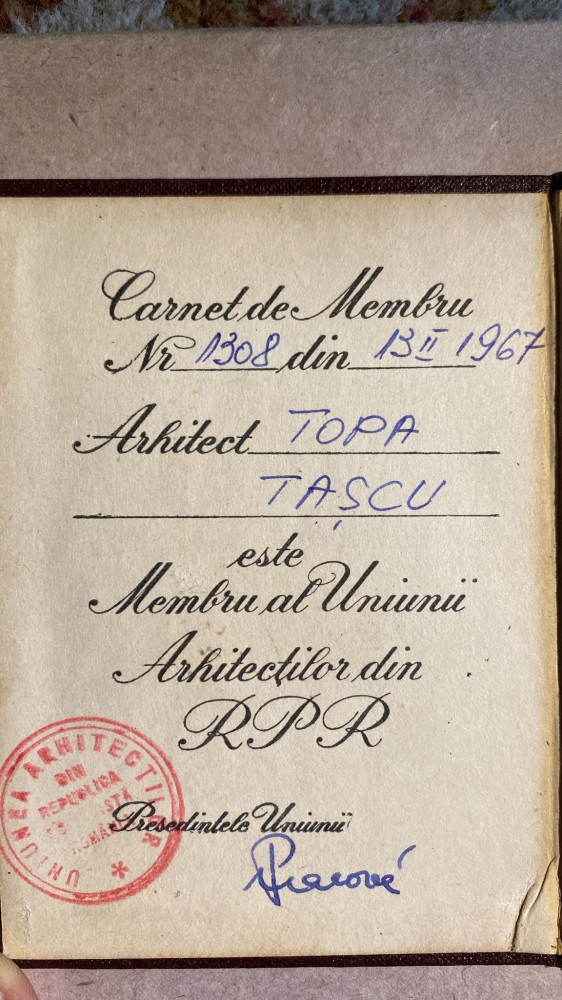 Carnet de Membru
Nr 1308 din 13 II 1967
Arhitect TOPA
TAȘCU
este
Membru al Uniunii
Arhitecților din
RPR
Președintele Uniunii
UNIUNEA ARHITECȚILOR
DIN
REPUBLICA
ROMÂNIA